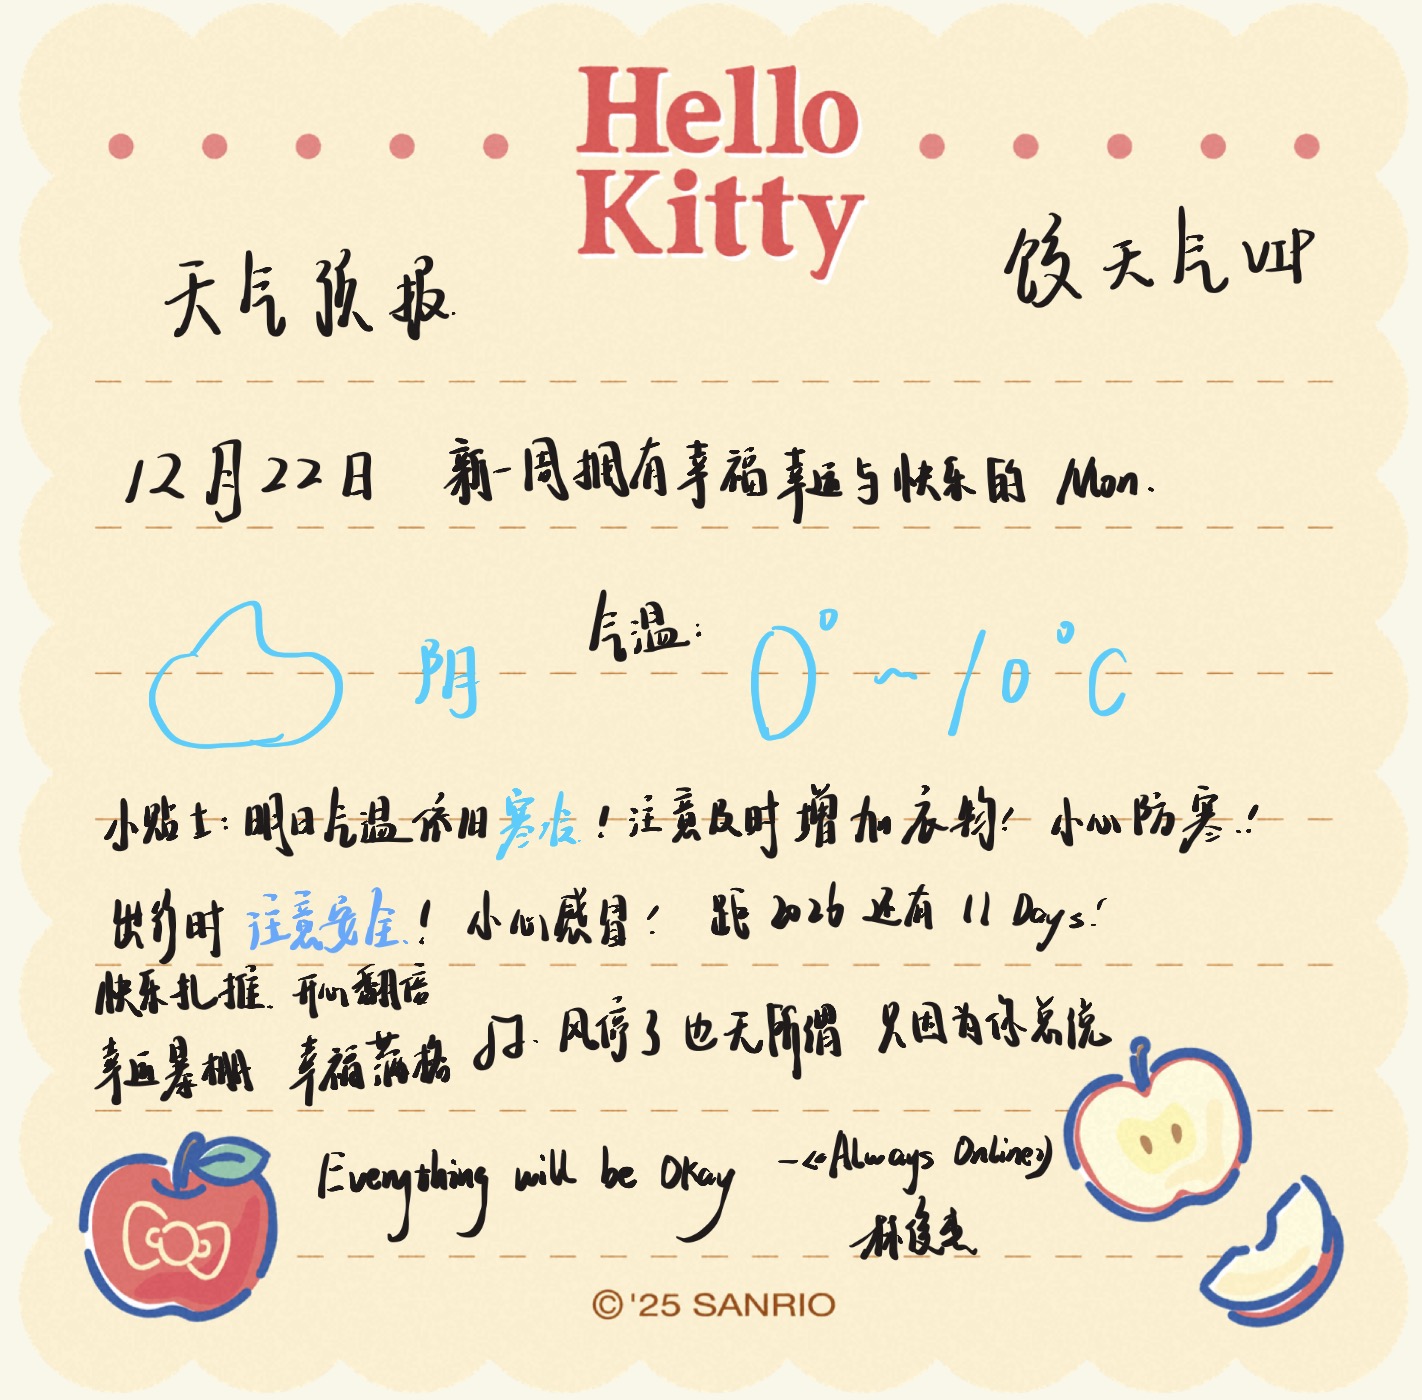 Hello
Kitty
天气预报.
饺天气VIP
12月22日 新一周拥有幸福幸运与快乐的 Mon.
阴 气温: 0°~10°C
小贴士: 明日气温依旧寒冷! 注意及时增加衣物! 小心防寒!
出行时注意安全! 小心感冒! 距2026还有11 Days!
快乐扎堆 开心翻倍
幸运暴棚 幸福满格
♫. 风停了也无所谓 只因为你总说
Everything will be Okay —《Always Online》
林俊杰
©'25 SANRIO